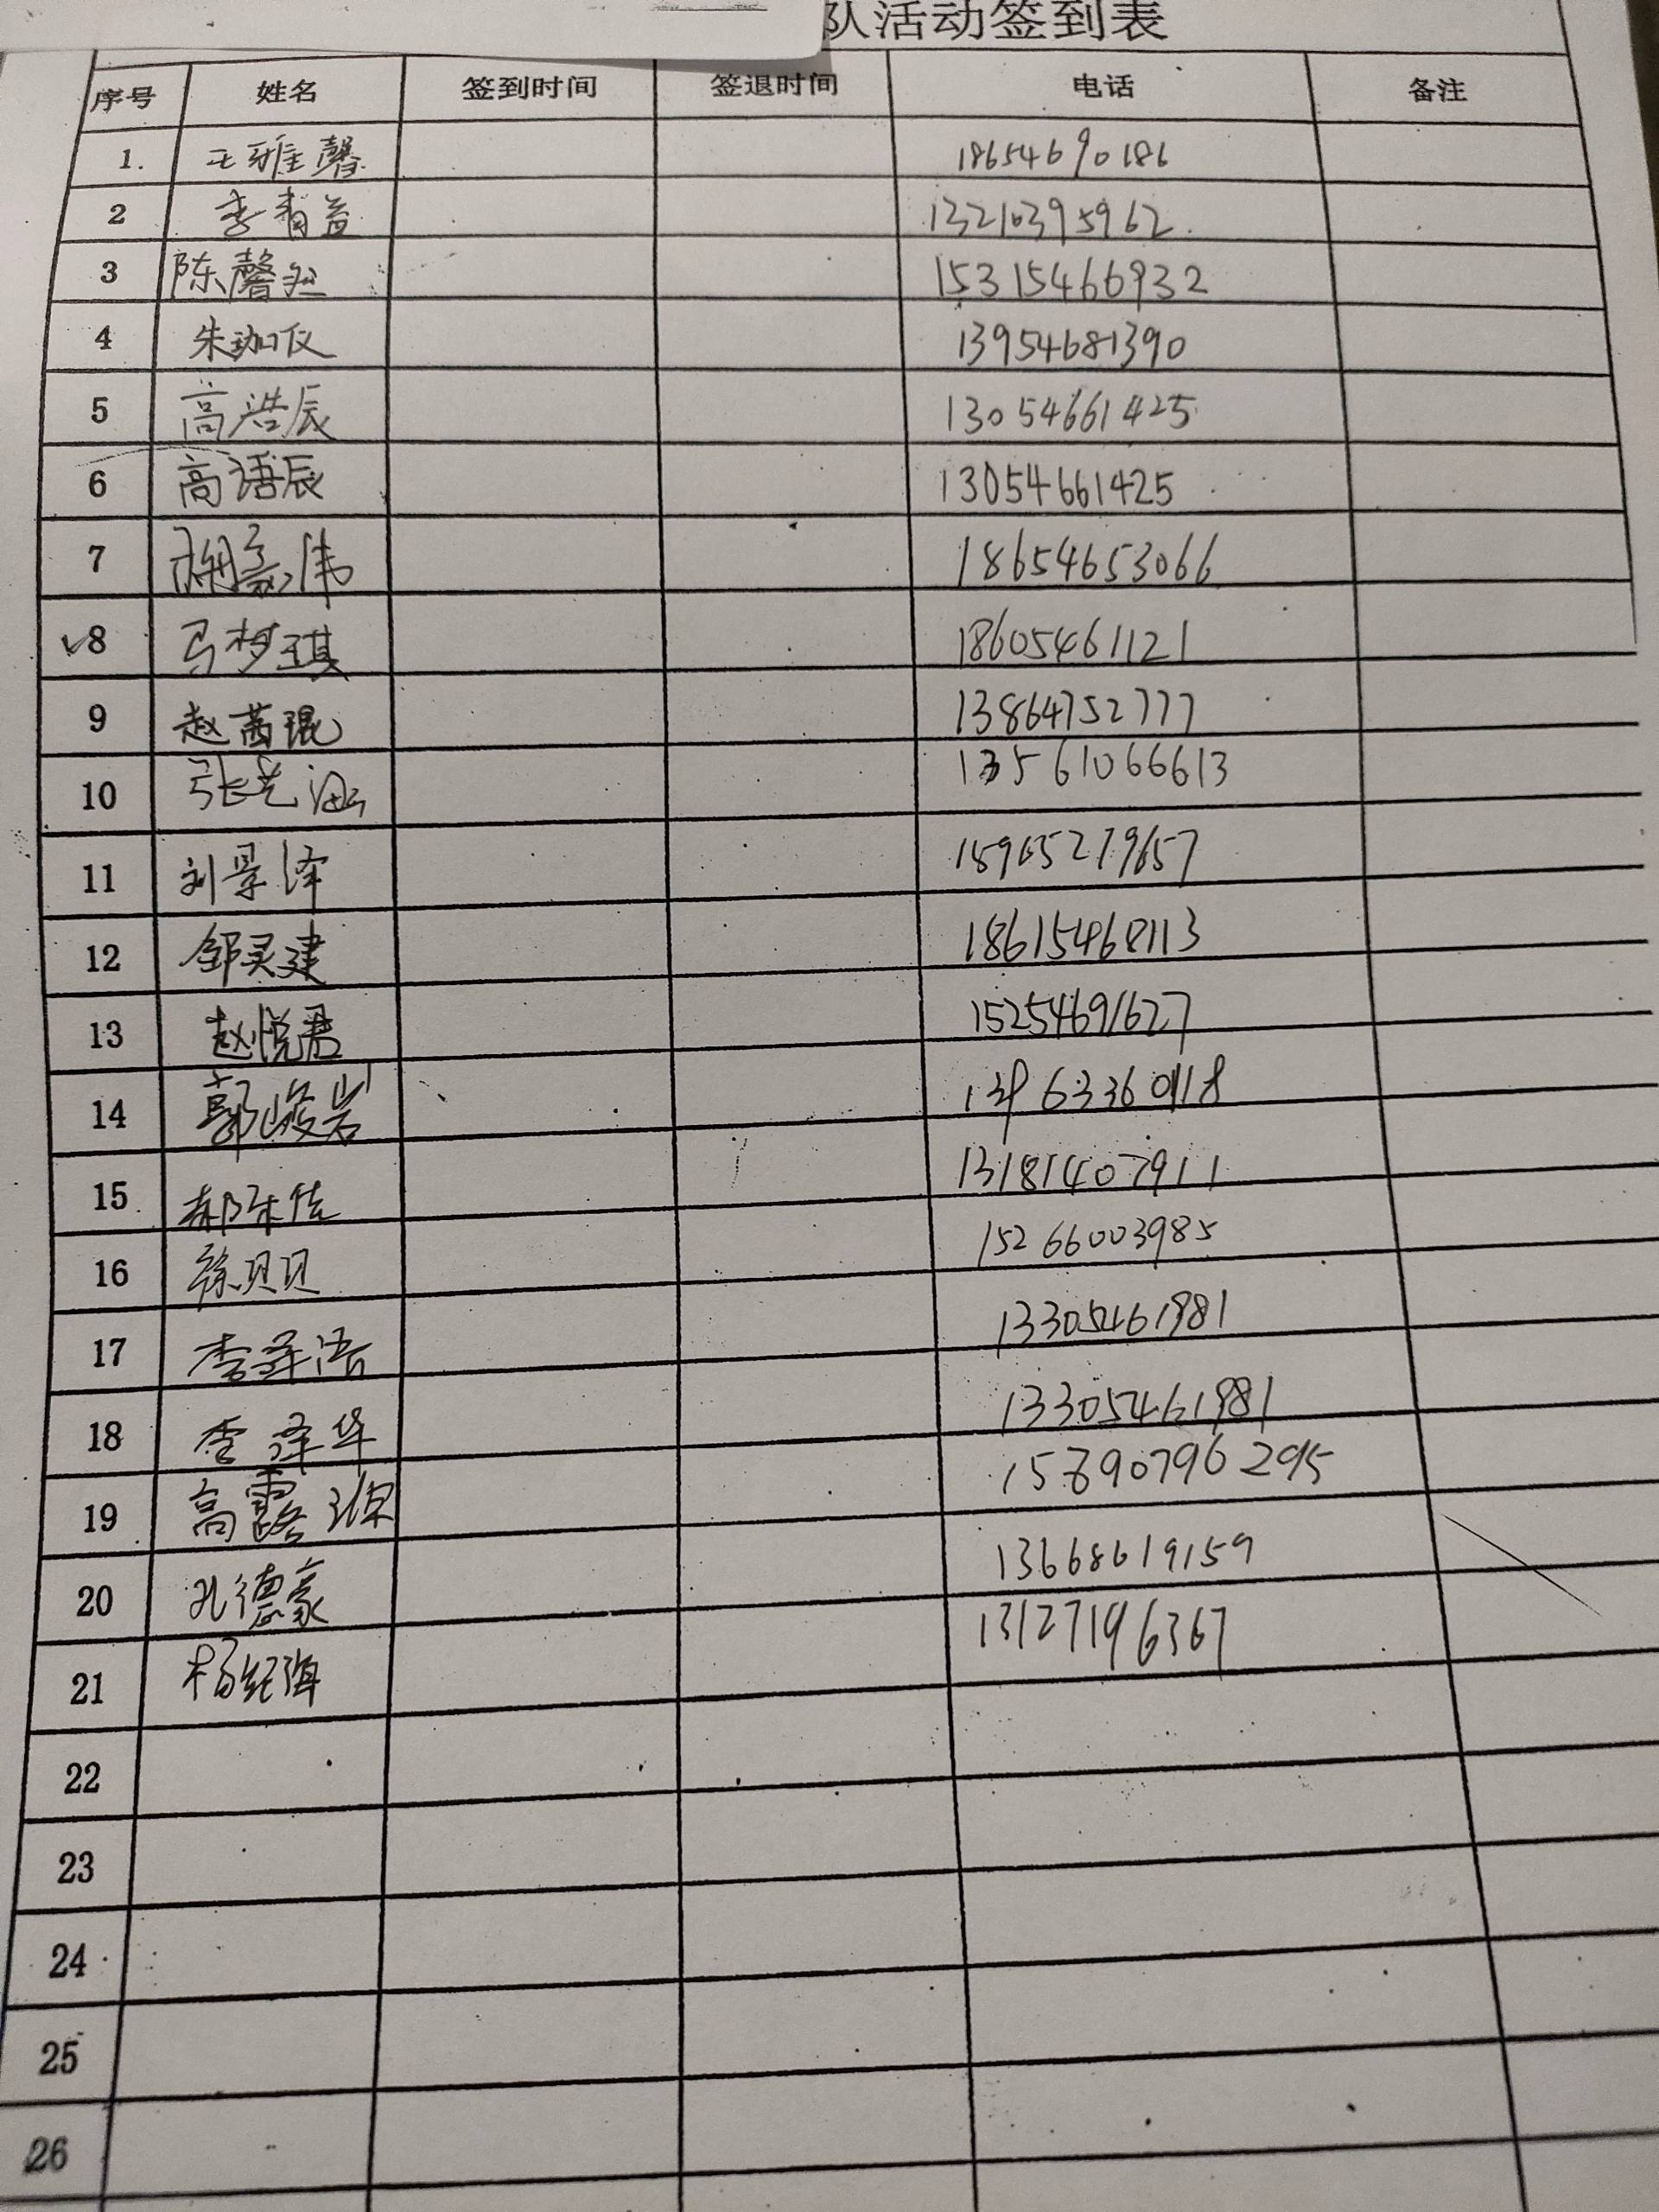 队活动签到表
序号 姓名 签到时间 签退时间 电话 备注
1. 王雅馨 18654690186
2 李青益 13210395962
3 陈馨 15315466932
4 朱珈仪 13954681390
5 高浩辰 13054661425
6 高语辰 13054661425
7 豪伟 18654653066
✓8 马梦琪 18605461121
9 赵茜琨 13864752777
10 张艺涵 13561066613
11 刘景泽
12 邹灵建 18615468113
13 赵悦君 15254691627
14 郭峻岩
15 郝佳 13181407911
16 徐贝贝 15266003985
17 李泽浩 13305461981
18 李泽华 13305461981
19 高露
20 孔德豪 13668619159
21 杨经海 13127196367
22
23
24
25
26